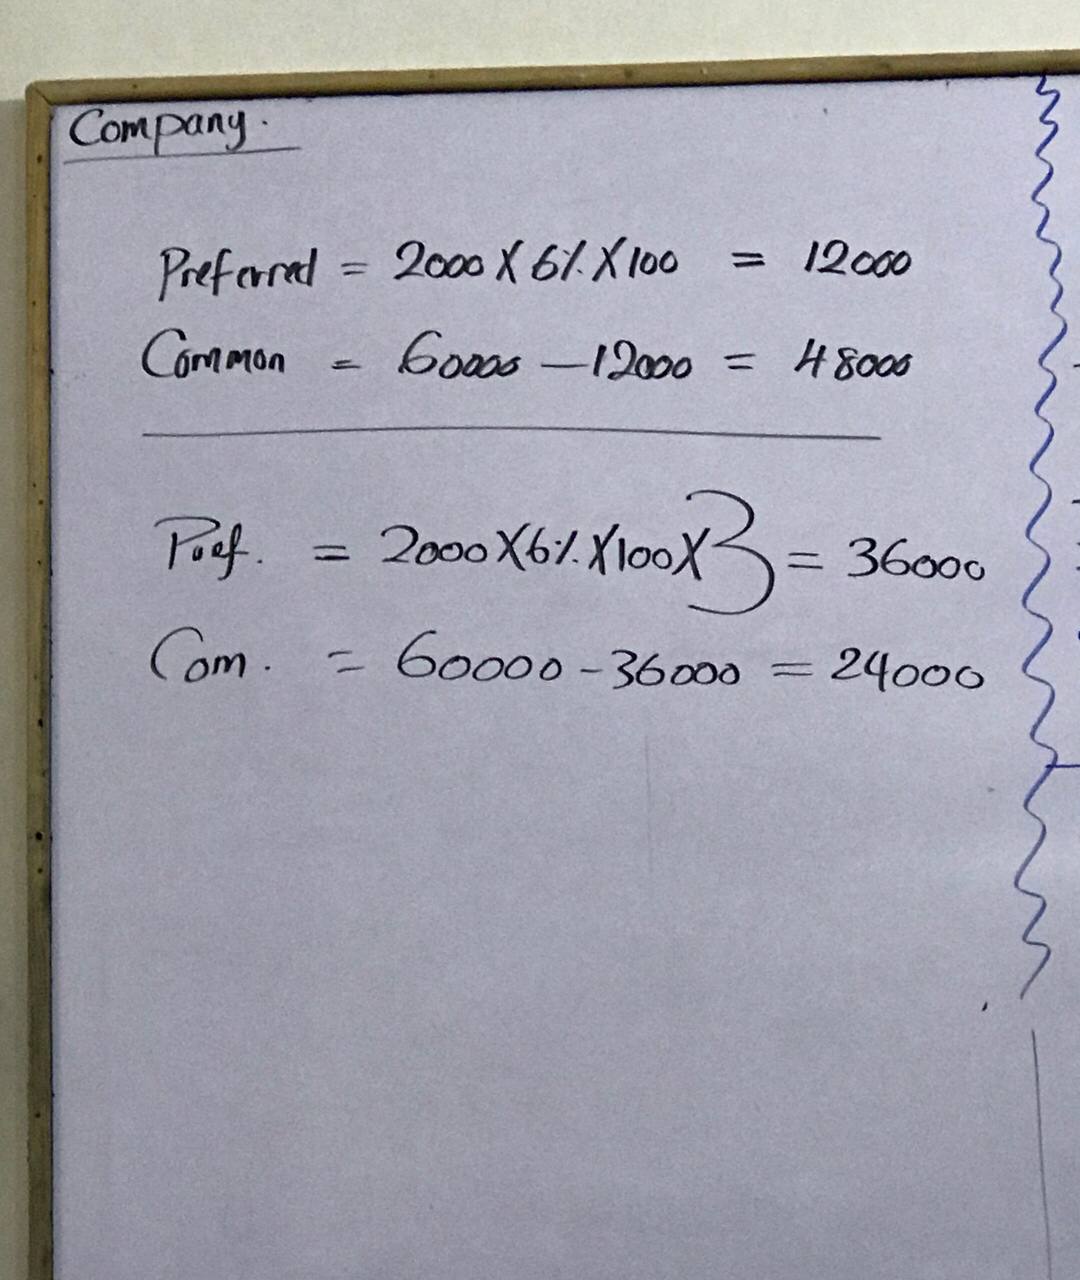 Company.
Preferred = 2000 X 6% X 100 = 12000
Common = 60000 - 12000 = 48000
Pref. = 2000 X 6% X 100 X 3 = 36000
Com. = 60000 - 36000 = 24000